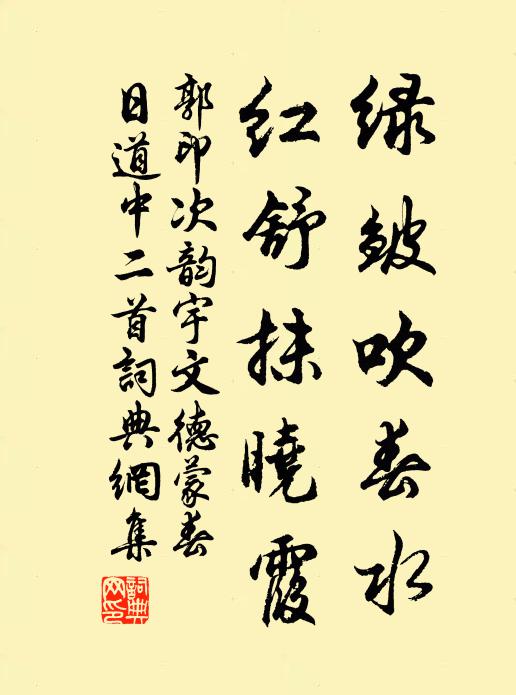 绿皱吹春水
红舒抹晓霞
郭印次韵宇文德蒙春
日道中二首词典网集
词典网印